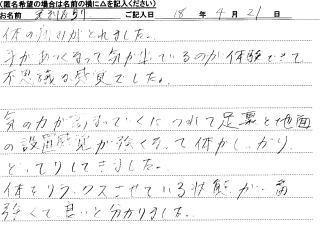 (匿名希望の場合は名前の横に△を記入ください)
お名前 ご記入日 18年4月21日
体の痛みがとれました。
手があつくなって気が出ているのが体験できて
不思議な感覚でした。
気の力が高まっていくにつれて足裏と地面
の設置感覚が強くなって体がしっかり
どっしりしてきました。
体をリラックスさせている状態が一番
強くて良いと分かりました。